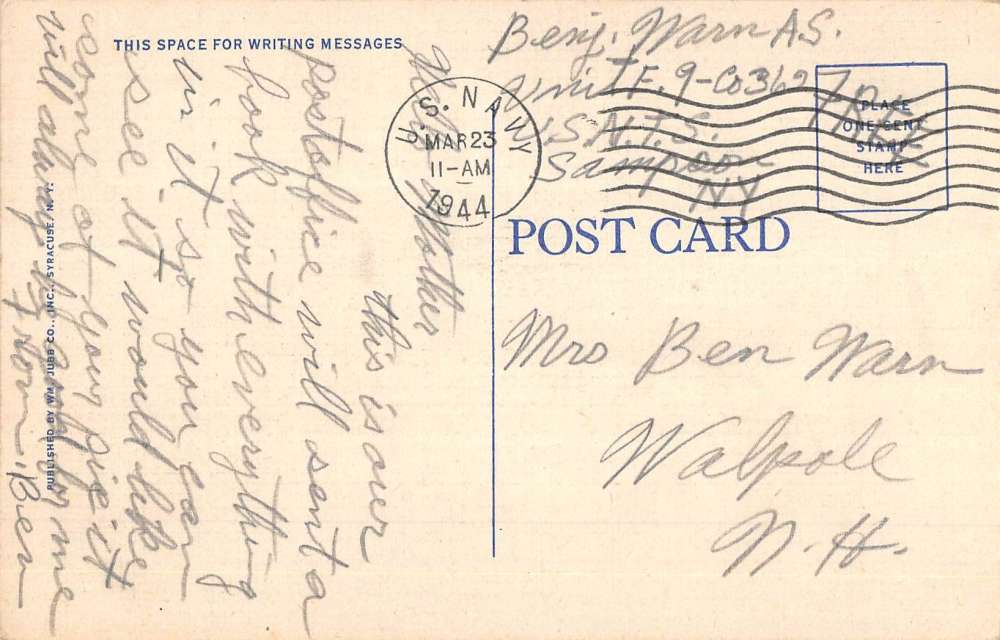 THIS SPACE FOR WRITING MESSAGES
Mother
this is our
postoffice will sent a
book with everything
in it so you can
see it would like
some of your pie it
will alway by for me
from Ben
PUBLISHED BY WM. JUBB CO., INC., SYRACUSE, N. Y.
Benj. Warn A.S.
Unit F. 9-Co 362 FREE
U.S.N.T.S.
Sampson
NY
U.S. NAVY
MAR 23
11-AM
1944
PLACE
ONE CENT
STAMP
HERE
POST CARD
Mrs Ben Warn
Walpole
N.H.